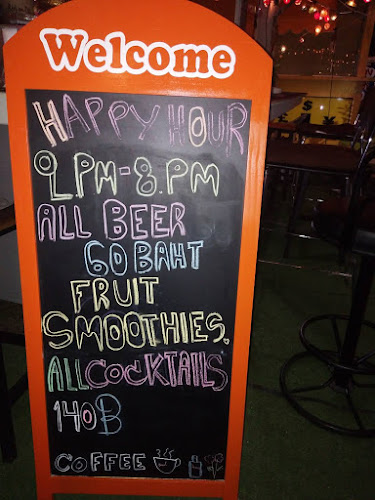 Welcome
HAPPY HOUR
2PM-8.PM
ALL BEER
60 BAHT
FRUIT
SMOOTHIES.
ALL COCKTAILS
140B
COFFEE